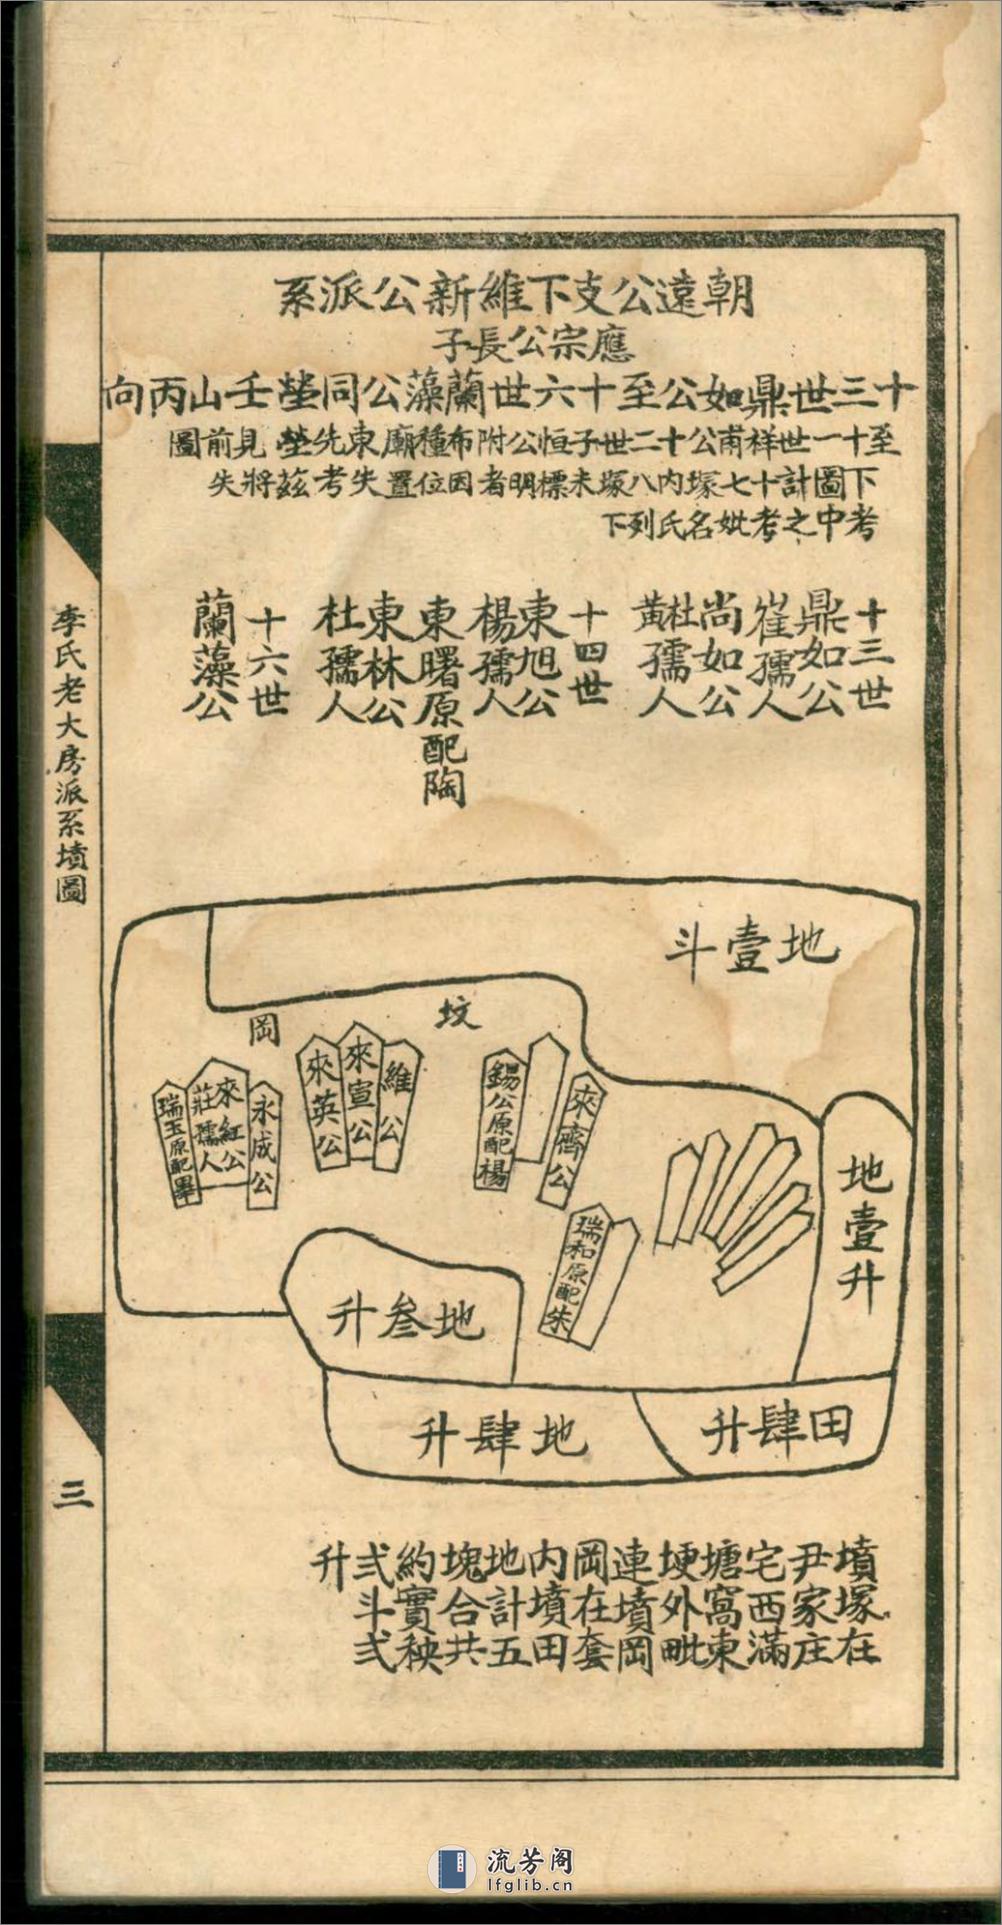 朝遠公支下維新公派系
應宗公長子
十三世鼎如公至十六世蘭藻公同塋壬山丙向
至十一世祥甫公十二世子恒公附布種廟東先塋見前圖
下圖計十七塚內八塚未標明者因位置失考茲將失
考中之考妣名氏列下
十三世
鼎如公
崔孺人
尚如公
杜黃孺人
十四世
東旭公
楊孺人
東曙原配陶
東林公
杜孺人
十六世
蘭藻公
李氏老大房派系墳圖
三
地壹斗
坟
岡
來齊公
錫公原配楊
維公
來宣公
來英公
永成公
來紅公
莊孺人
瑞玉原配畢
瑞和原配朱
地壹升
地叁升
田肆升
地肆升
墳塚在
尹家庄
宅西滿
塘窩東
埂外毗
連墳岡
岡在套
內墳田
地計五
塊合共
約實秧
弍斗弍
升
流芳阁
lfglib.cn